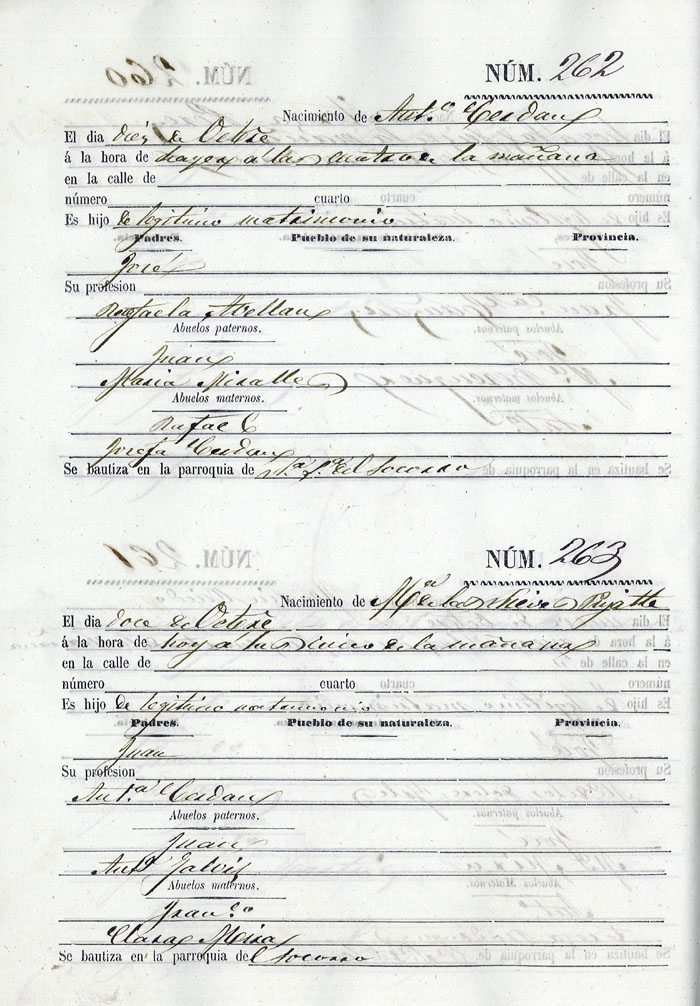 NÚM. 262
Nacimiento de Ant.º Cerdan
El dia diez de Octbre
á la hora de hayer á las cuatro de la mañana
en la calle de
número cuarto
Es hijo de legitimo matrimonio
Padres. Pueblo de su naturaleza. Provincia.
José
Su profesion
Rafaela Avellan
Abuelos paternos.
Juan
Maria Miralles
Abuelos maternos.
Rafael
Josefa Cerdan
Se bautiza en la parroquia de del Socorro
NÚM. 263
Nacimiento de M.ª de las Nieves
El dia doce de Octbre
á la hora de hoy á las cinco de la mañana
en la calle de
número cuarto
Es hijo de legitimo matrimonio
Padres. Pueblo de su naturaleza. Provincia.
Juan
Su profesion
Ant.ª Cerdan
Abuelos paternos.
Juan
Ant.ª Galvis
Abuelos maternos.
Fran.co
Clara Mira
Se bautiza en la parroquia del Socorro